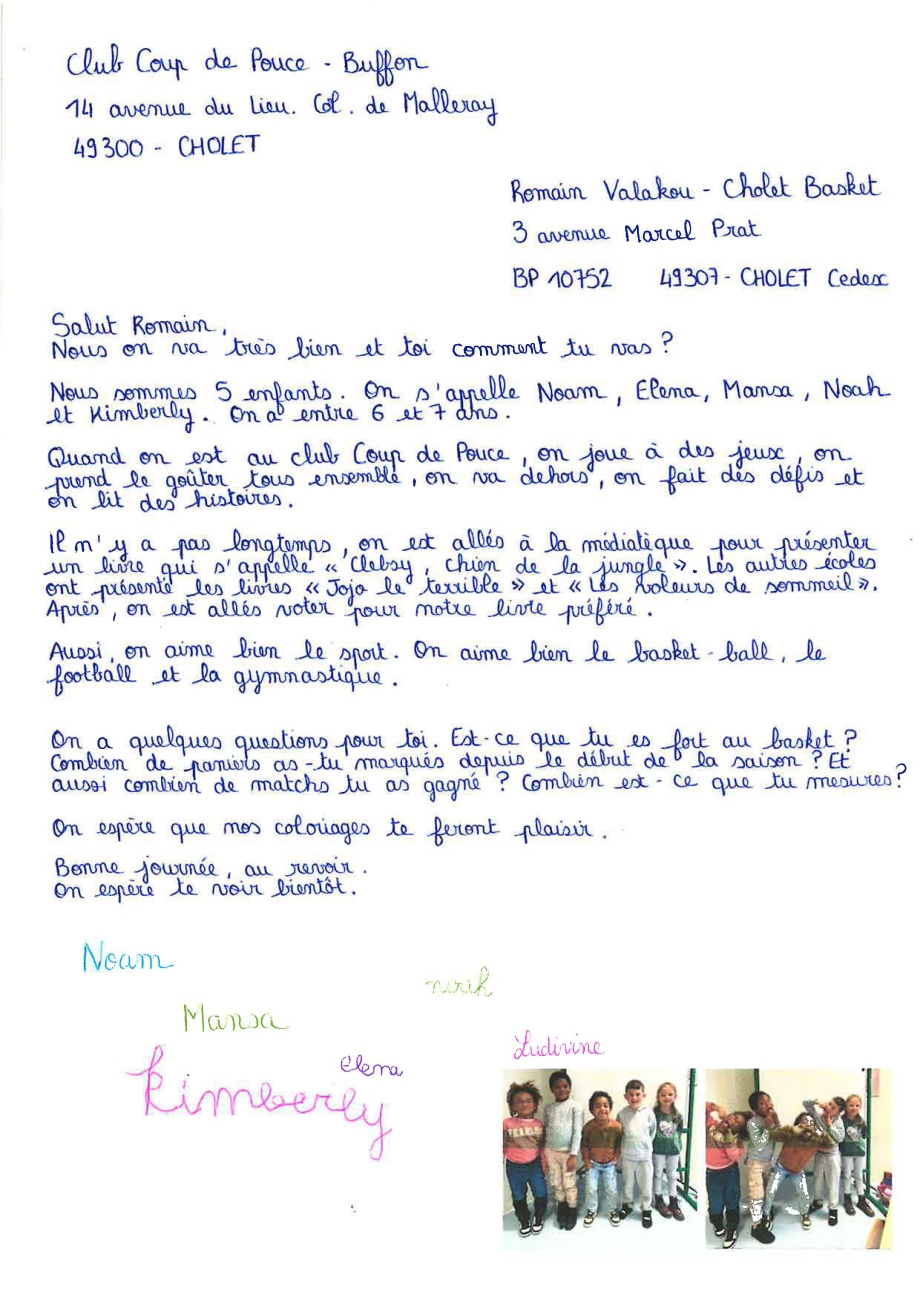 Club Coup de Pouce - Buffon
14 avenue du Lieu. Col. de Malleray
49300 - CHOLET
Romain Valakou - Cholet Basket
3 avenue Marcel Prat
BP 10752 49307 - CHOLET Cedex
Salut Romain,
Nous on va très bien et toi comment tu vas ?
Nous sommes 5 enfants. On s'appelle Noam, Elena, Mansa, Noah
et Kimberly. On a entre 6 et 7 ans.
Quand on est au club Coup de Pouce, on joue à des jeux, on
prend le goûter tous ensemble, on va dehors, on fait des défis et
on lit des histoires.
Il n'y a pas longtemps, on est allés à la médiatèque pour présenter
un livre qui s'appelle « Clebsy, chien de la jungle ». Les autres écoles
ont présenté les livres « Jojo le terrible » et « Les voleurs de sommeil ».
Après, on est allés voter pour notre livre préféré.
Aussi, on aime bien le sport. On aime bien le basket-ball, le
football et la gymnastique.
On a quelques questions pour toi. Est-ce que tu es fort au basket ?
Combien de paniers as-tu marqués depuis le début de la saison ? Et
aussi combien de matchs tu as gagné ? Combien est-ce que tu mesures ?
On espère que nos coloriages te feront plaisir.
Bonne journée, au revoir.
On espère te voir bientôt.
Noam
Mansa
Elena
Kimberly
Ludivine